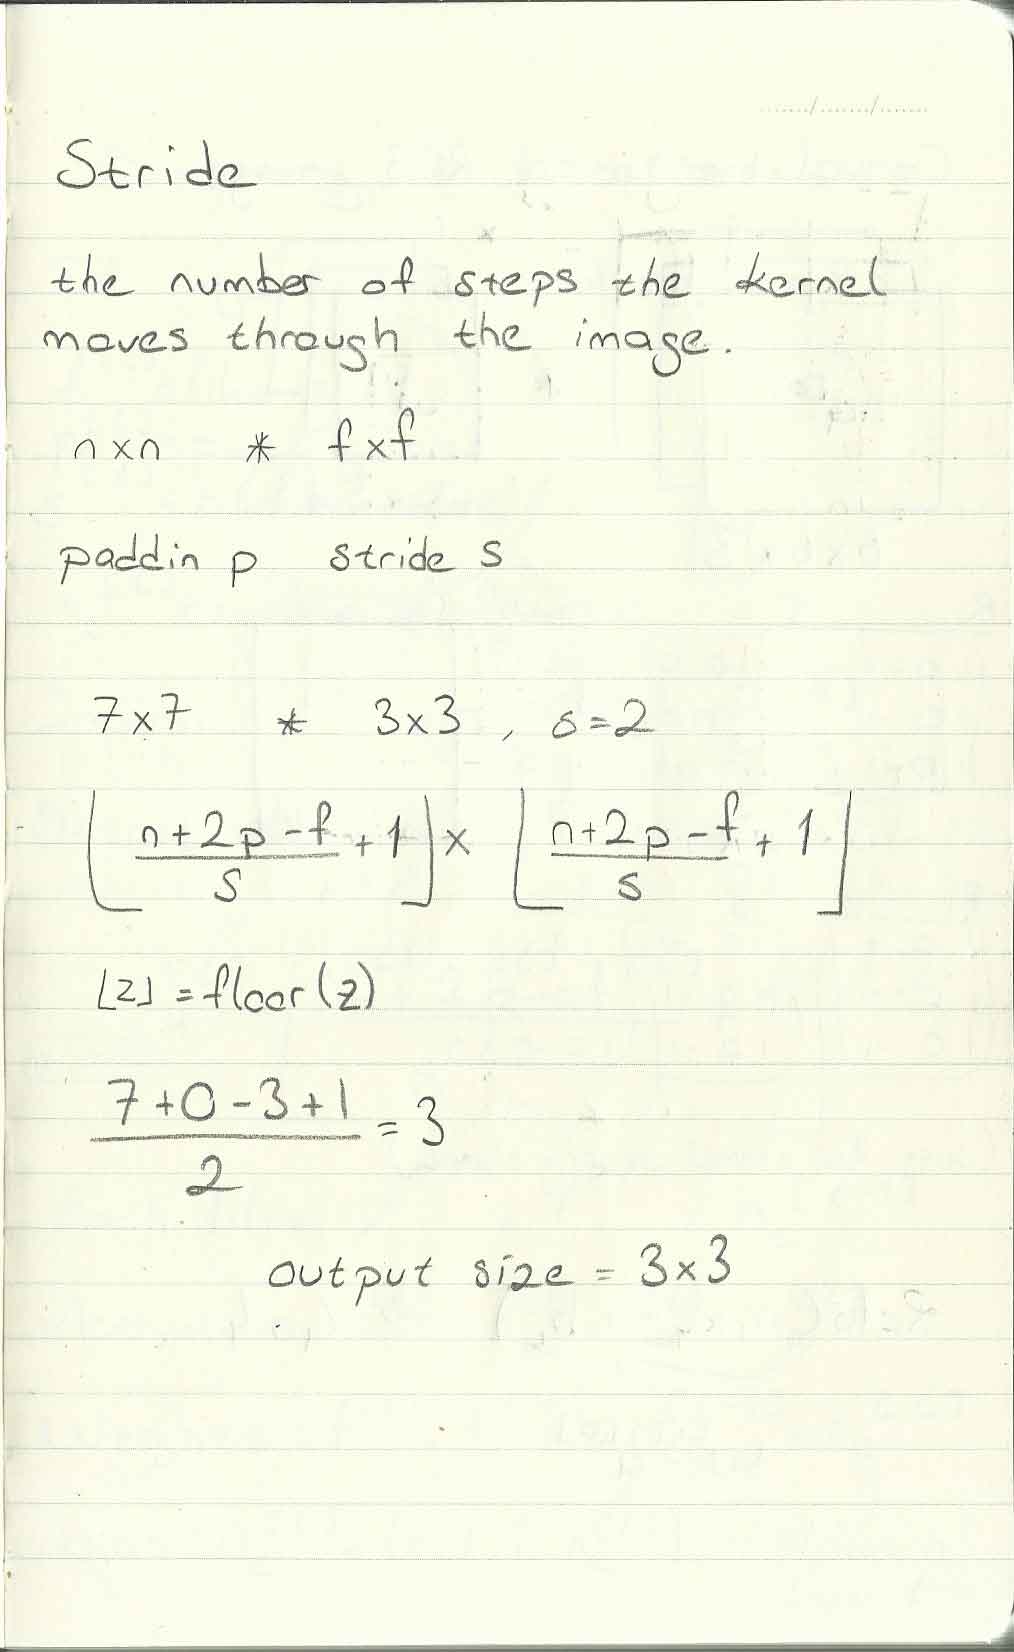 Stride
the number of steps the kernel
moves through the image.
n×n * f×f
paddin p stride s
7×7 * 3×3 , s=2
⌊(n+2p-f)/s + 1⌋ × ⌊(n+2p-f)/s + 1⌋
⌊z⌋ = floor(z)
(7+0-3+1)/2 = 3
output size = 3×3